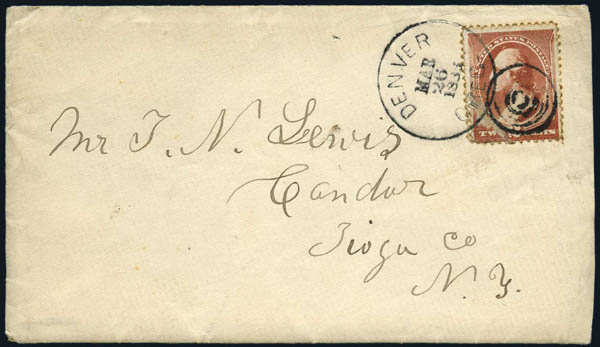 DENVER
MAR
26
UNITED STATES POSTAGE
TWO CENTS
2
Mr T. N. Lewis
Candor
Tioga Co
N. Y.